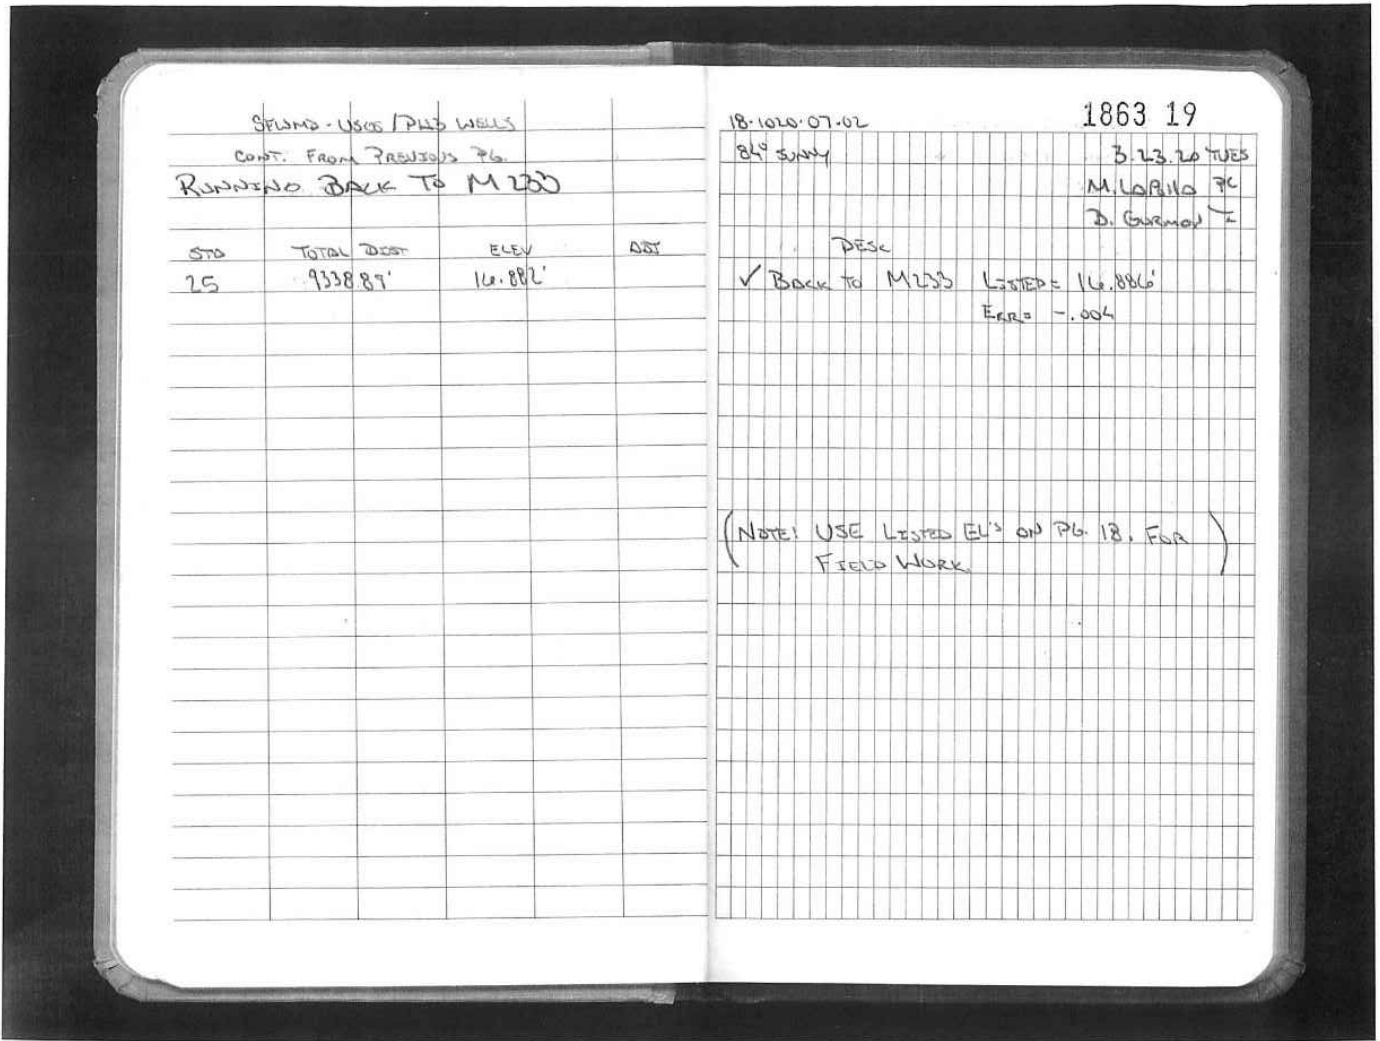 SFWMD - USGS / PWS WELLS
CONT. FROM PREVIOUS PG.
RUNNING BACK TO M233
STA TOTAL DIST ELEV ADJ
25 9338.89' 16.882'
18-1020.07-02
1863 19
84° SUNNY
3.23.20 TUES
M. PC
D. GORMON
DESC
✓ BACK TO M233 LISTED = 16.886'
ERR = -.004
(NOTE! USE LISTED EL'S ON PG. 18. FOR
FIELD WORK.)